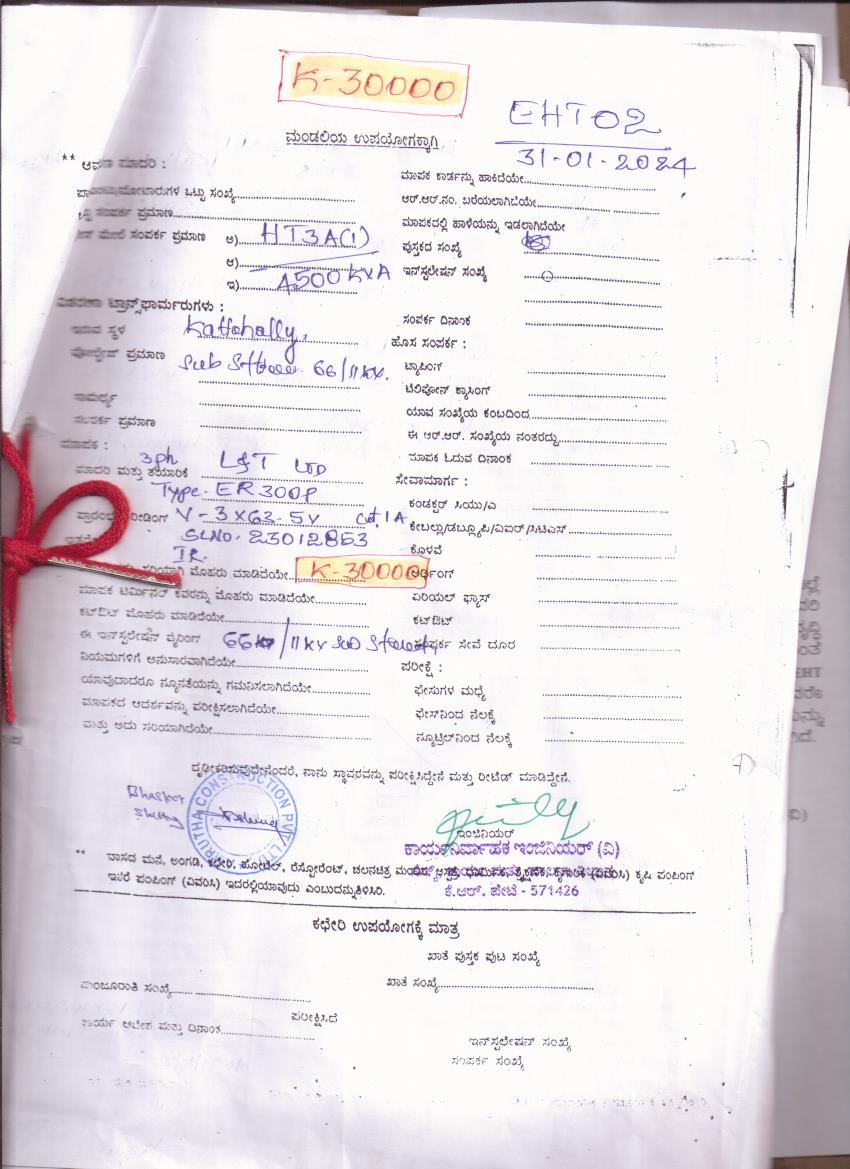 K-30000
EHT02
31-01-2024
ಮಂಡಲಿಯ ಉಪಯೋಗಕ್ಕಾಗಿ
** ಆವಣ ಮಾದರಿ :
ಒಟ್ಟು ಸಂಖ್ಯೆ
ಸಂಪರ್ಕ ಪ್ರಮಾಣ
ಮೇಲೆ ಸಂಪರ್ಕ ಪ್ರಮಾಣ ಅ) HT3A(1)
ಆ)
ಇ) 4500KVA
ಟ್ರಾನ್ಸ್‌ಫಾರ್ಮರುಗಳು :
ಇರುವ ಸ್ಥಳ Kattahally,
ವೋಲ್ಟೇಜ್ ಪ್ರಮಾಣ Sub 66/11KV.
ಸಾಮರ್ಥ್ಯ
ಸಂಪರ್ಕ ಪ್ರಮಾಣ
ಮಾಪಕ :
3ph L&T LTD
ಮಾದರಿ ಮತ್ತು ತಯಾರಿಕೆ
Type-ER300P
ರೀಡಿಂಗ್ V-3X63-5V 1A
SLNO. 23012853
IR.
ಸರಿಯಾಗಿ ಮೊಹರು ಮಾಡಿದೆಯೇ K-30000
ಮಾಪಕ ಟರ್ಮಿನಲ್ ಕವರನ್ನು ಮೊಹರು ಮಾಡಿದೆಯೇ
ಕಟ್‌ಔಟ್ ಮೊಹರು ಮಾಡಿದೆಯೇ
ಈ ಇನ್‌ಸ್ಟಲೇಷನ್ ವೈರಿಂಗ್ 66 /11KV Sub
ನಿಯಮಗಳಿಗೆ ಅನುಸಾರವಾಗಿದೆಯೇ
ಯಾವುದಾದರೂ ನ್ಯೂನತೆಯನ್ನು ಗಮನಿಸಲಾಗಿದೆಯೇ
ಮಾಪಕದ ಆದರ್ಶವನ್ನು ಪರೀಕ್ಷಿಸಲಾಗಿದೆಯೇ
ಮತ್ತು ಅದು ಸರಿಯಾಗಿದೆಯೇ
ಮಾಪಕ ಕಾರ್ಡನ್ನು ಹಾಕಿದೆಯೇ
ಆರ್.ಆರ್.ನಂ. ಬರೆಯಲಾಗಿದೆಯೇ
ಮಾಪಕದಲ್ಲಿ ಹಾಳೆಯನ್ನು ಇಡಲಾಗಿದೆಯೇ
ಪುಸ್ತಕದ ಸಂಖ್ಯೆ
ಇನ್‌ಸ್ಟಲೇಷನ್ ಸಂಖ್ಯೆ
ಸಂಪರ್ಕ ದಿನಾಂಕ
ಹೊಸ ಸಂಪರ್ಕ :
ಟ್ಯಾಪಿಂಗ್
ಟೆಲಿಫೋನ್ ಕ್ಯಾಸಿಂಗ್
ಯಾವ ಸಂಖ್ಯೆಯ ಕಂಬದಿಂದ
ಈ ಆರ್.ಆರ್. ಸಂಖ್ಯೆಯ ನಂತರದ್ದು
ಮಾಪಕ ಓದುವ ದಿನಾಂಕ
ಸೇವಾಮಾರ್ಗ :
ಕಂಡಕ್ಟರ್ ಸಿಯು/ಎ
ಕೇಬಲ್ಲು/ಡಬ್ಲ್ಯೂಪಿ/ವಿಐಆರ್/ಸಿಟಿಎಸ್
ಕೊಳವೆ
ಅರ್ಥಿಂಗ್
ಏರಿಯಲ್ ಫ್ಯೂಸ್
ಕಟ್‌ಔಟ್
ಸಂಪರ್ಕ ಸೇವೆ ದೂರ
ಪರೀಕ್ಷೆ :
ಫೇಸುಗಳ ಮಧ್ಯೆ
ಫೇಸ್‌ನಿಂದ ನೆಲಕ್ಕೆ
ನ್ಯೂಟ್ರಲ್‌ನಿಂದ ನೆಲಕ್ಕೆ
ದೃಢೀಕರಿಸುವುದೇನೆಂದರೆ, ನಾನು ಸ್ಥಾವರವನ್ನು ಪರೀಕ್ಷಿಸಿದ್ದೇನೆ ಮತ್ತು ರೀಟೆಡ್ ಮಾಡಿದ್ದೇನೆ.
CONSTRUCTION PVT
ಇಂಜಿನಿಯರ್
ಕಾರ್ಯನಿರ್ವಾಹಕ ಇಂಜಿನಿಯರ್ (ವಿ)
ಕೆ.ಆರ್. ಪೇಟೆ - 571426
** ವಾಸದ ಮನೆ, ಅಂಗಡಿ, ಕಛೇರಿ, ಹೋಟೆಲ್, ರೆಸ್ಟೋರೆಂಟ್, ಚಲನಚಿತ್ರ ಮಂದಿರ, ಆಸ್ಪತ್ರೆ, ಧಾರ್ಮಿಕ, ಶೈಕ್ಷಣಿಕ, ಕೈಗಾರಿಕೆ (ವಿವರಿಸಿ) ಕೃಷಿ ಪಂಪಿಂಗ್
ಇತರೆ ಪಂಪಿಂಗ್ (ವಿವರಿಸಿ) ಇದರಲ್ಲಿಯಾವುದು ಎಂಬುದನ್ನು ತಿಳಿಸಿರಿ.
ಕಛೇರಿ ಉಪಯೋಗಕ್ಕೆ ಮಾತ್ರ
ಖಾತೆ ಪುಸ್ತಕ ಪುಟ ಸಂಖ್ಯೆ
ಮಂಜೂರಾತಿ ಸಂಖ್ಯೆ
ಖಾತೆ ಸಂಖ್ಯೆ
ಪರೀಕ್ಷಿಸಿದೆ
ಕಾರ್ಯ ಆದೇಶ ಮತ್ತು ದಿನಾಂಕ
ಇನ್‌ಸ್ಟಲೇಷನ್ ಸಂಖ್ಯೆ
ಸಂಪರ್ಕ ಸಂಖ್ಯೆ